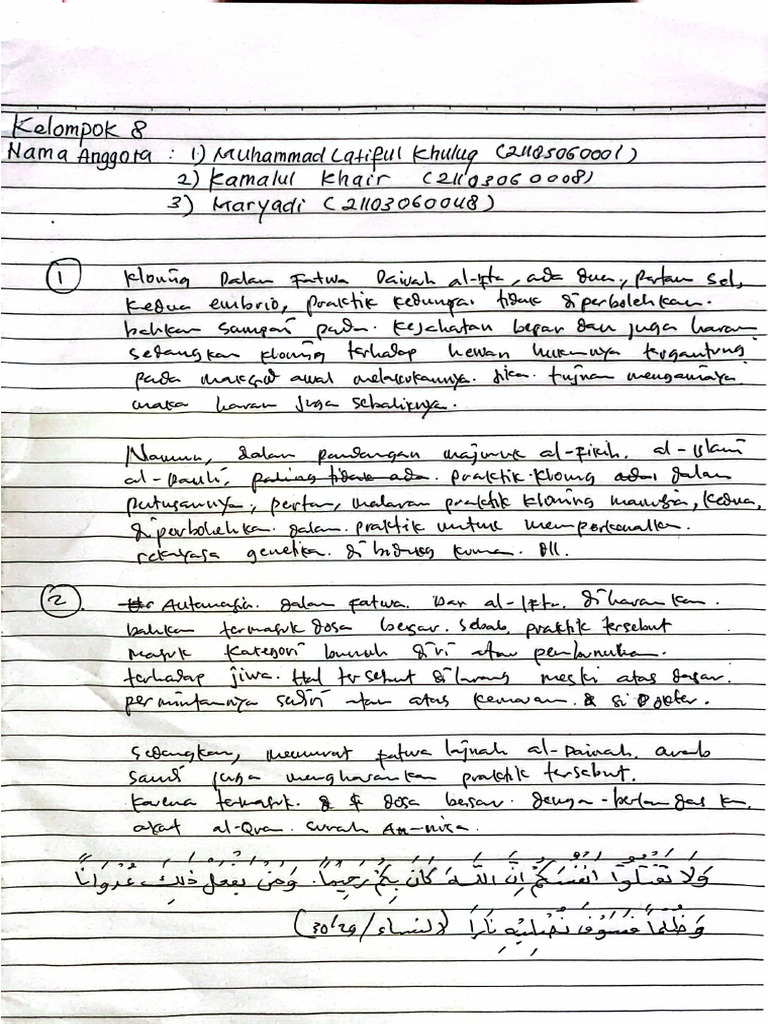 Kelompok 8
Nama Anggota : 1) Muhammad Latiful Khuluq (21105060001)
2) Kamalul Khair (21103060008)
3) Maryadi (21103060048)
1 Kloning Dalam Fatwa Dairah al-Ifta, ada dua, pertama sel,
kedua embrio, praktik keduanya tidak diperbolehkan.
bahkan sampai pada kejahatan besar dan juga haram
sedangkan kloning terhadap hewan hukumnya tergantung
pada maksud awal melakukannya. Jika tujuan menganiaya
maka haram juga sebaliknya.
Namun, dalam pandangan majmuk al-fikih al-Islami
al-Dauli, paling tidak ada praktik kloning ada dalam
putusannya, pertama, melarang praktik kloning manusia, kedua,
diperbolehkan dalam praktik untuk memperkenalkan
rekayasa genetika di bidang kuman dll.
2. Autanasia dalam fatwa Dar al-Ifta diharamkan.
bahkan termasuk dosa besar. sebab, praktik tersebut
masuk kategori bunuh diri atau pembunuhan
terhadap jiwa. Hal tersebut dilarang meski atas dasar
permintaannya sendiri atau atas kemauan si Dokter.
Sedangkan, menurut fatwa lajnah al-Daimah arab
saudi juga mengharamkan praktik tersebut.
karena termasuk dosa besar. dengan berlandaskan
ayat al-Qran surah An-nisa.
وَلَا تَقْتُلُوْا اَنْفُسَكُمْ اِنَّ اللّٰهَ كَانَ بِكُمْ رَحِيْمًا. وَمَنْ يَفْعَلْ ذٰلِكَ عُدْوَانًا
وَظُلْمًا فَسَوْفَ نُصْلِيْهِ نَارًا (النساء / ٢٩، ٣٠)